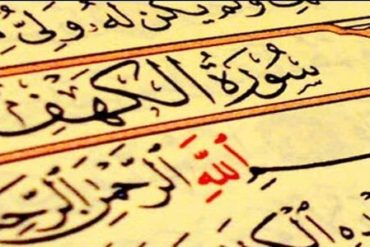 وَلَمْ يَكُن لَّهُ وَلِيٌّ
سُورَةُ الْكَهْفِ
بِسْمِ اللَّهِ الرَّحْمَٰنِ الرَّحِيمِ